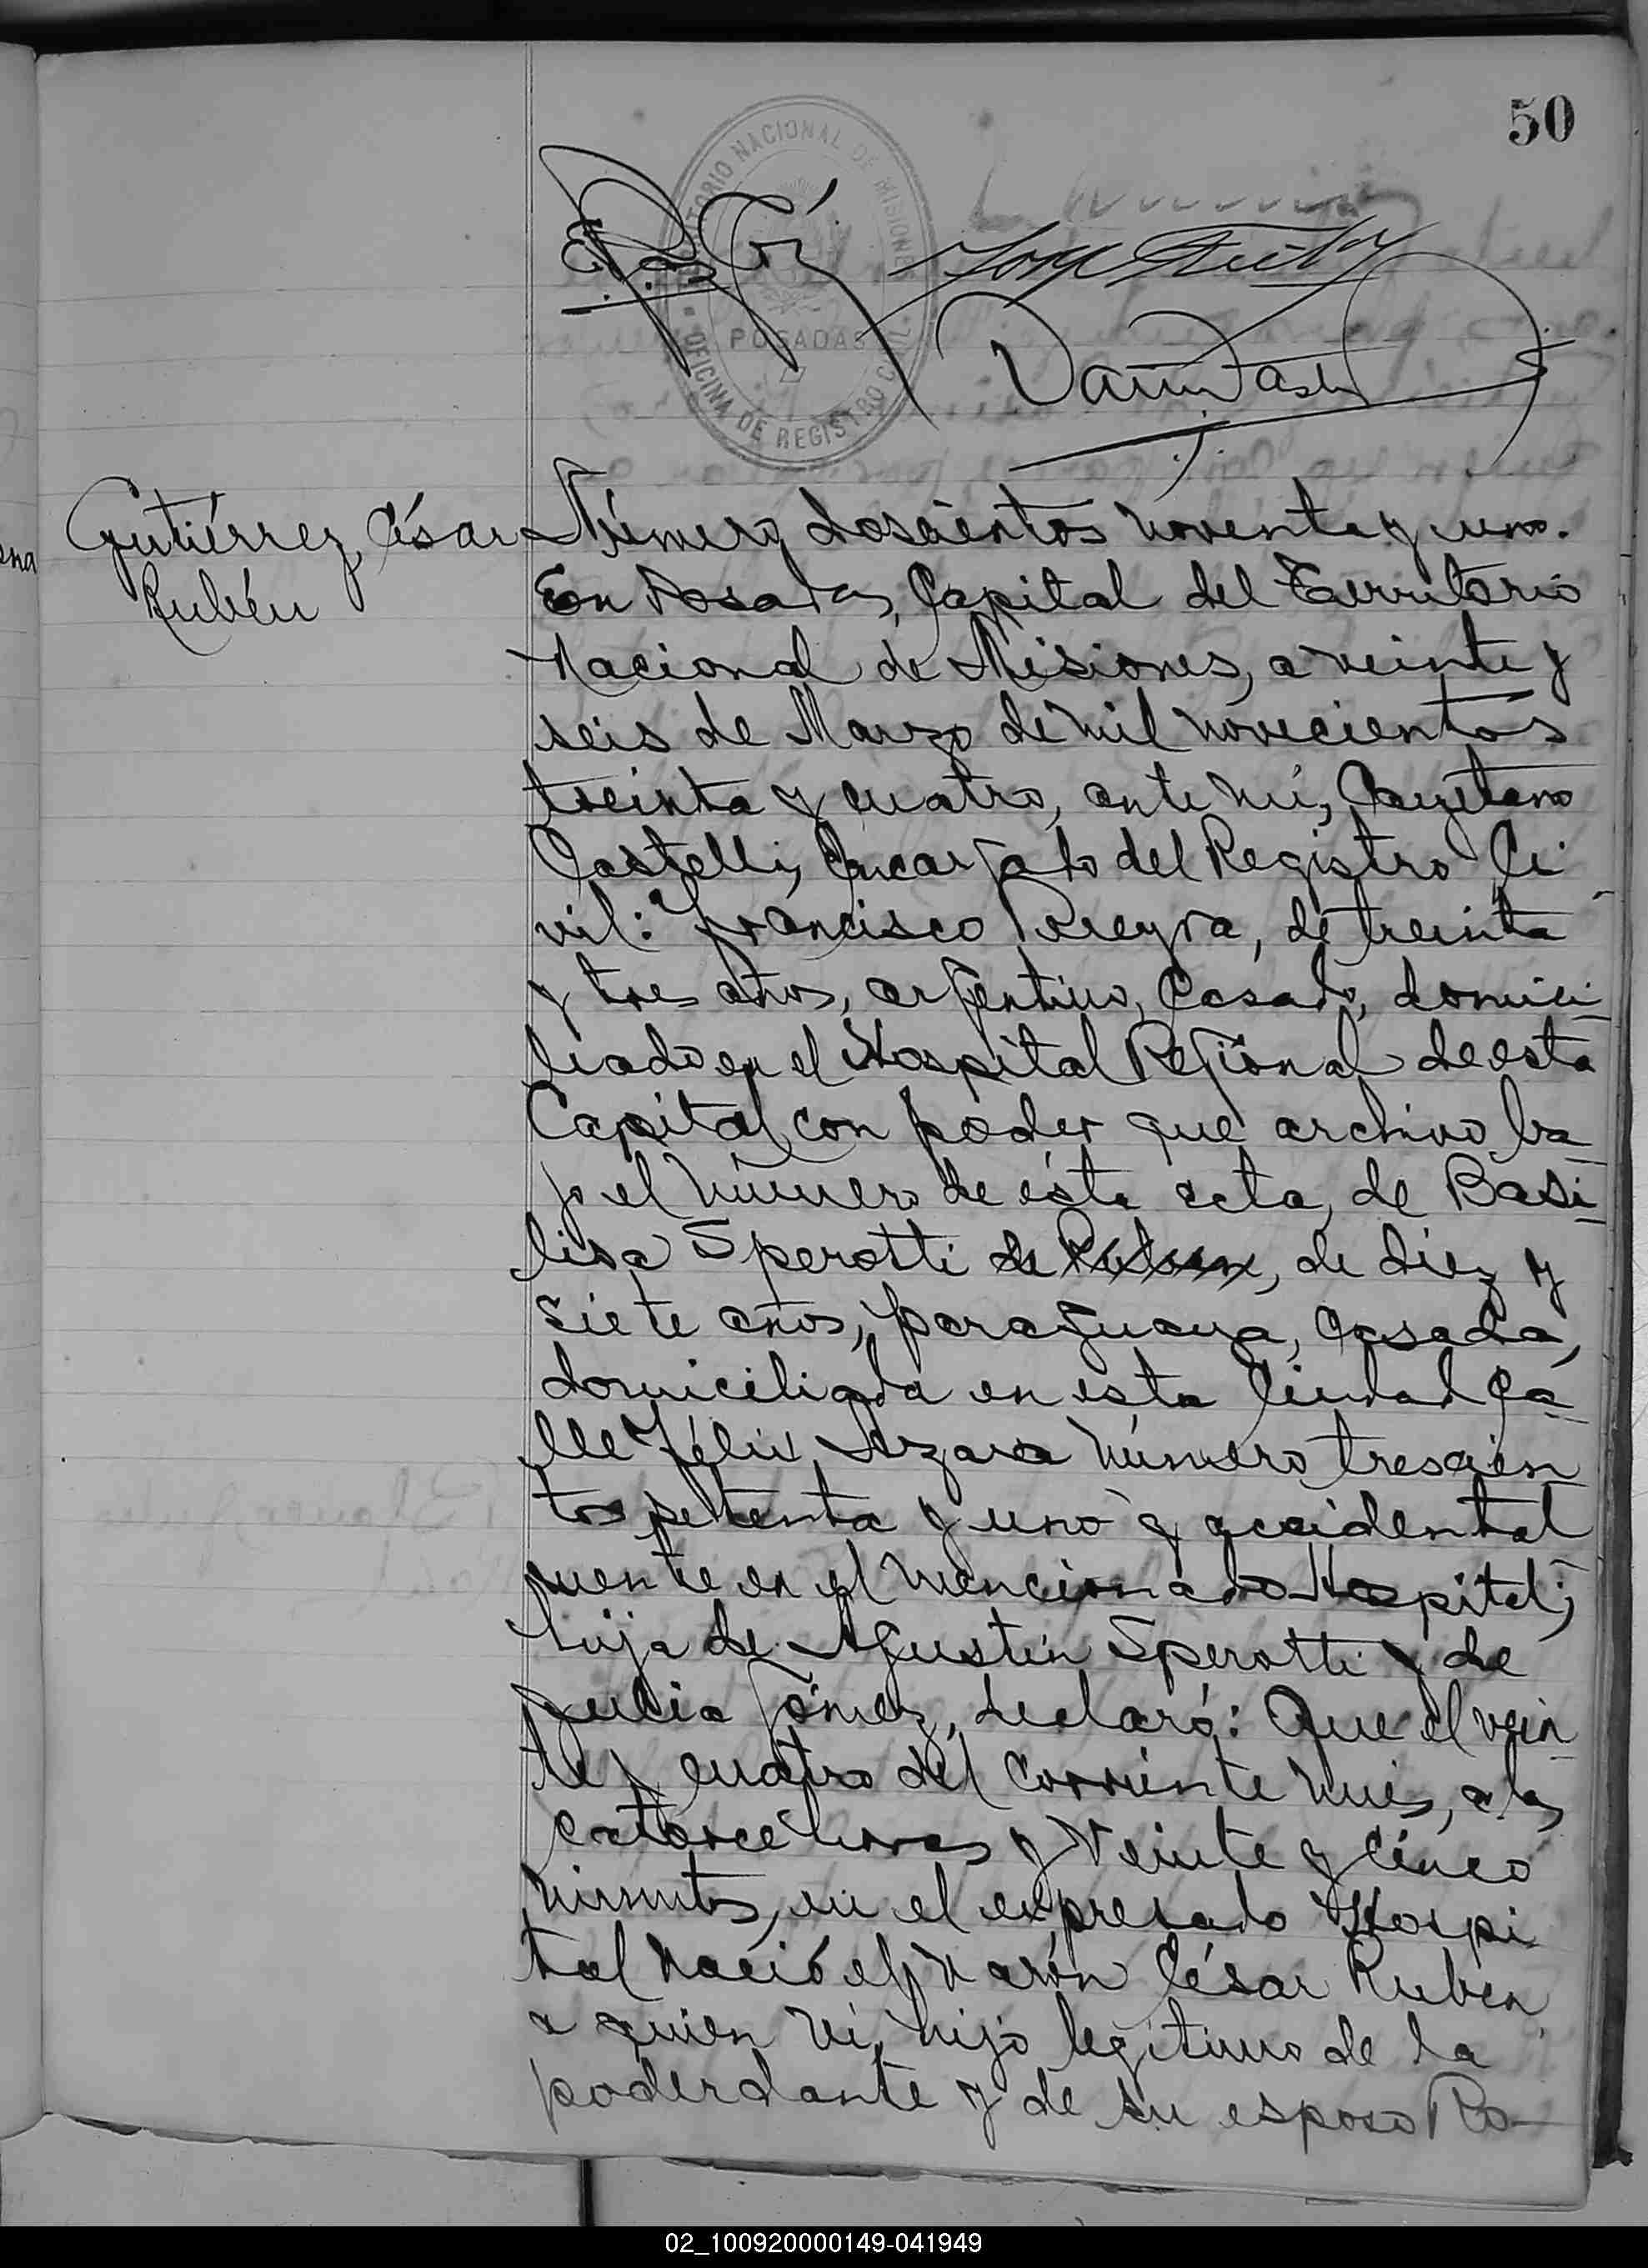 50
TERRITORIO NACIONAL DE MISIONES
POSADAS
OFICINA DE REGISTRO CIVIL
Gutiérrez, César
Rubén
Número doscientos noventa y uno.
En Posadas, Capital del Territorio
Nacional de Misiones, a veinte y
seis de Marzo de mil novecientos
treinta y cuatro, ante mí, Cayetano
Castelli, Encargado del Registro Ci
vil: Francisco Pereyra, de treinta
y tres años, argentino, Casado, domici-
liado en el Hospital Regional de esta
Capital con poder que archivo ba-
jo el número de ésta acta, de Basi-
lisa Sperotti de, de diez y
siete años, paraguaya, Casada,
domiciliada en esta Ciudad Ca-
lle Félix Azara número trescien
tos setenta y uno y accidental
mente en el mencionado Hospital;
hija de Agustín Sperotti y de
Julia Gómez, declaró: Que el vein-
te y cuatro del corriente mes, a las
catorce horas y veinte y cinco
minutos, en el expresado Hospi
tal nació el varón César Rubén
a quien ví, hijo legítimo de la
poderdante y de su esposo Ro-
02_100920000149-041949